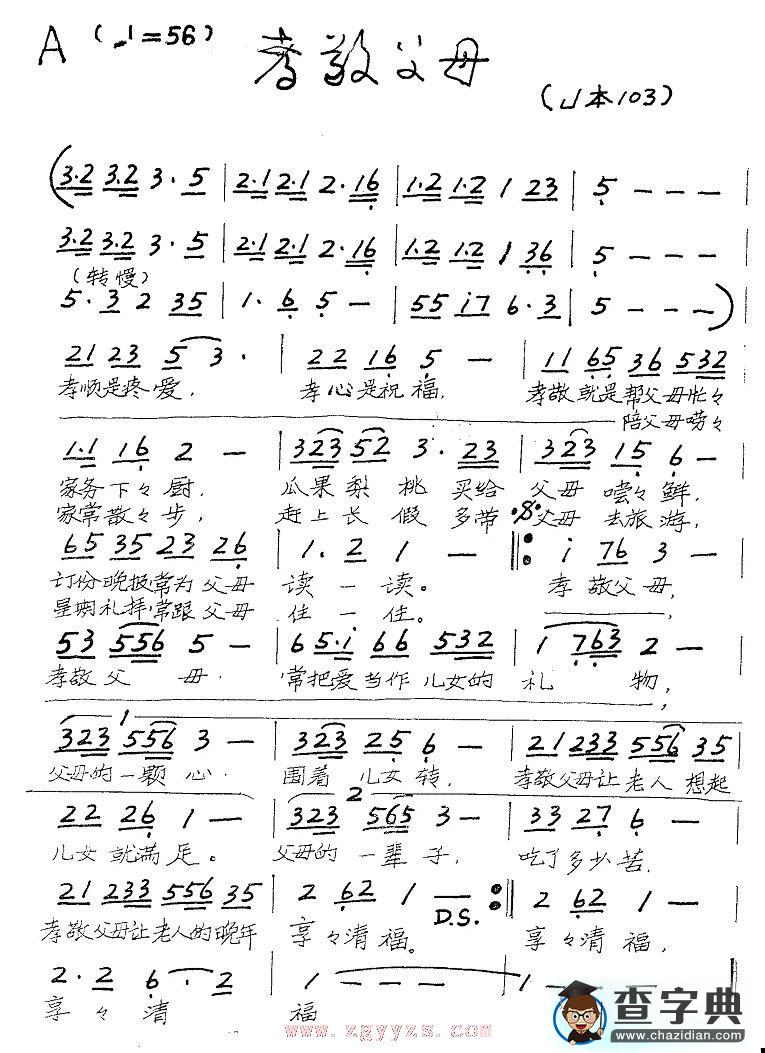 A (♩=56) 孝敬父母
(山本103)
(3.2 3.2 3. 5 | 2.1 2.1 2. 16 | 1.2 1.2 1 23 | 5 - - - |
3.2 3.2 3. 5 | 2.1 2.1 2. 16 | 1.2 1.2 1 36 | 5 - - - |
(转慢)
5. 3 2 35 | 1. 6 5 - | 55 i7 6. 3 | 5 - - - ) |
21 23 5 3. | 22 16 5 - | 11 65 36 532 |
孝顺是疼爱, 孝心是祝福, 孝敬就是帮父母忙々
陪父母唠々
1.1 16 2 - | 323 52 3. 23 | 323 15 6 - |
家务下々厨, 瓜果梨桃买给父母嚐々鲜,
家常散々步, 赶上长假多带父母去旅游,
65 35 23 26 | 1. 2 1 - ‖: i 76 3 - |
订份晚报常为父母读一读。 孝敬父母,
星期礼拜常跟父母住一住。
53 556 5 - | 65.i 66 532 | 1 763 2 - |
孝敬父母 常把爱当作儿女的礼物,
1
323 556 3 - | 323 25 6 - | 21 233 556 35 |
父母的一颗心 围着儿女转, 孝敬父母让老人想起
2
22 26 1 - | 323 565 3 - | 33 27 6 - |
儿女就满足。 父母的一辈子, 吃了多少苦.
21 233 556 35 | 2 62 1 — :‖ 2 62 1 - |
D.S.
孝敬父母让老人的晚年享々清福。 享々清福,
2. 2 6. 2 | 1 - - - | 1 - - -
享々清福
www.zgyyzs.com
查字典
www.chazidian.com